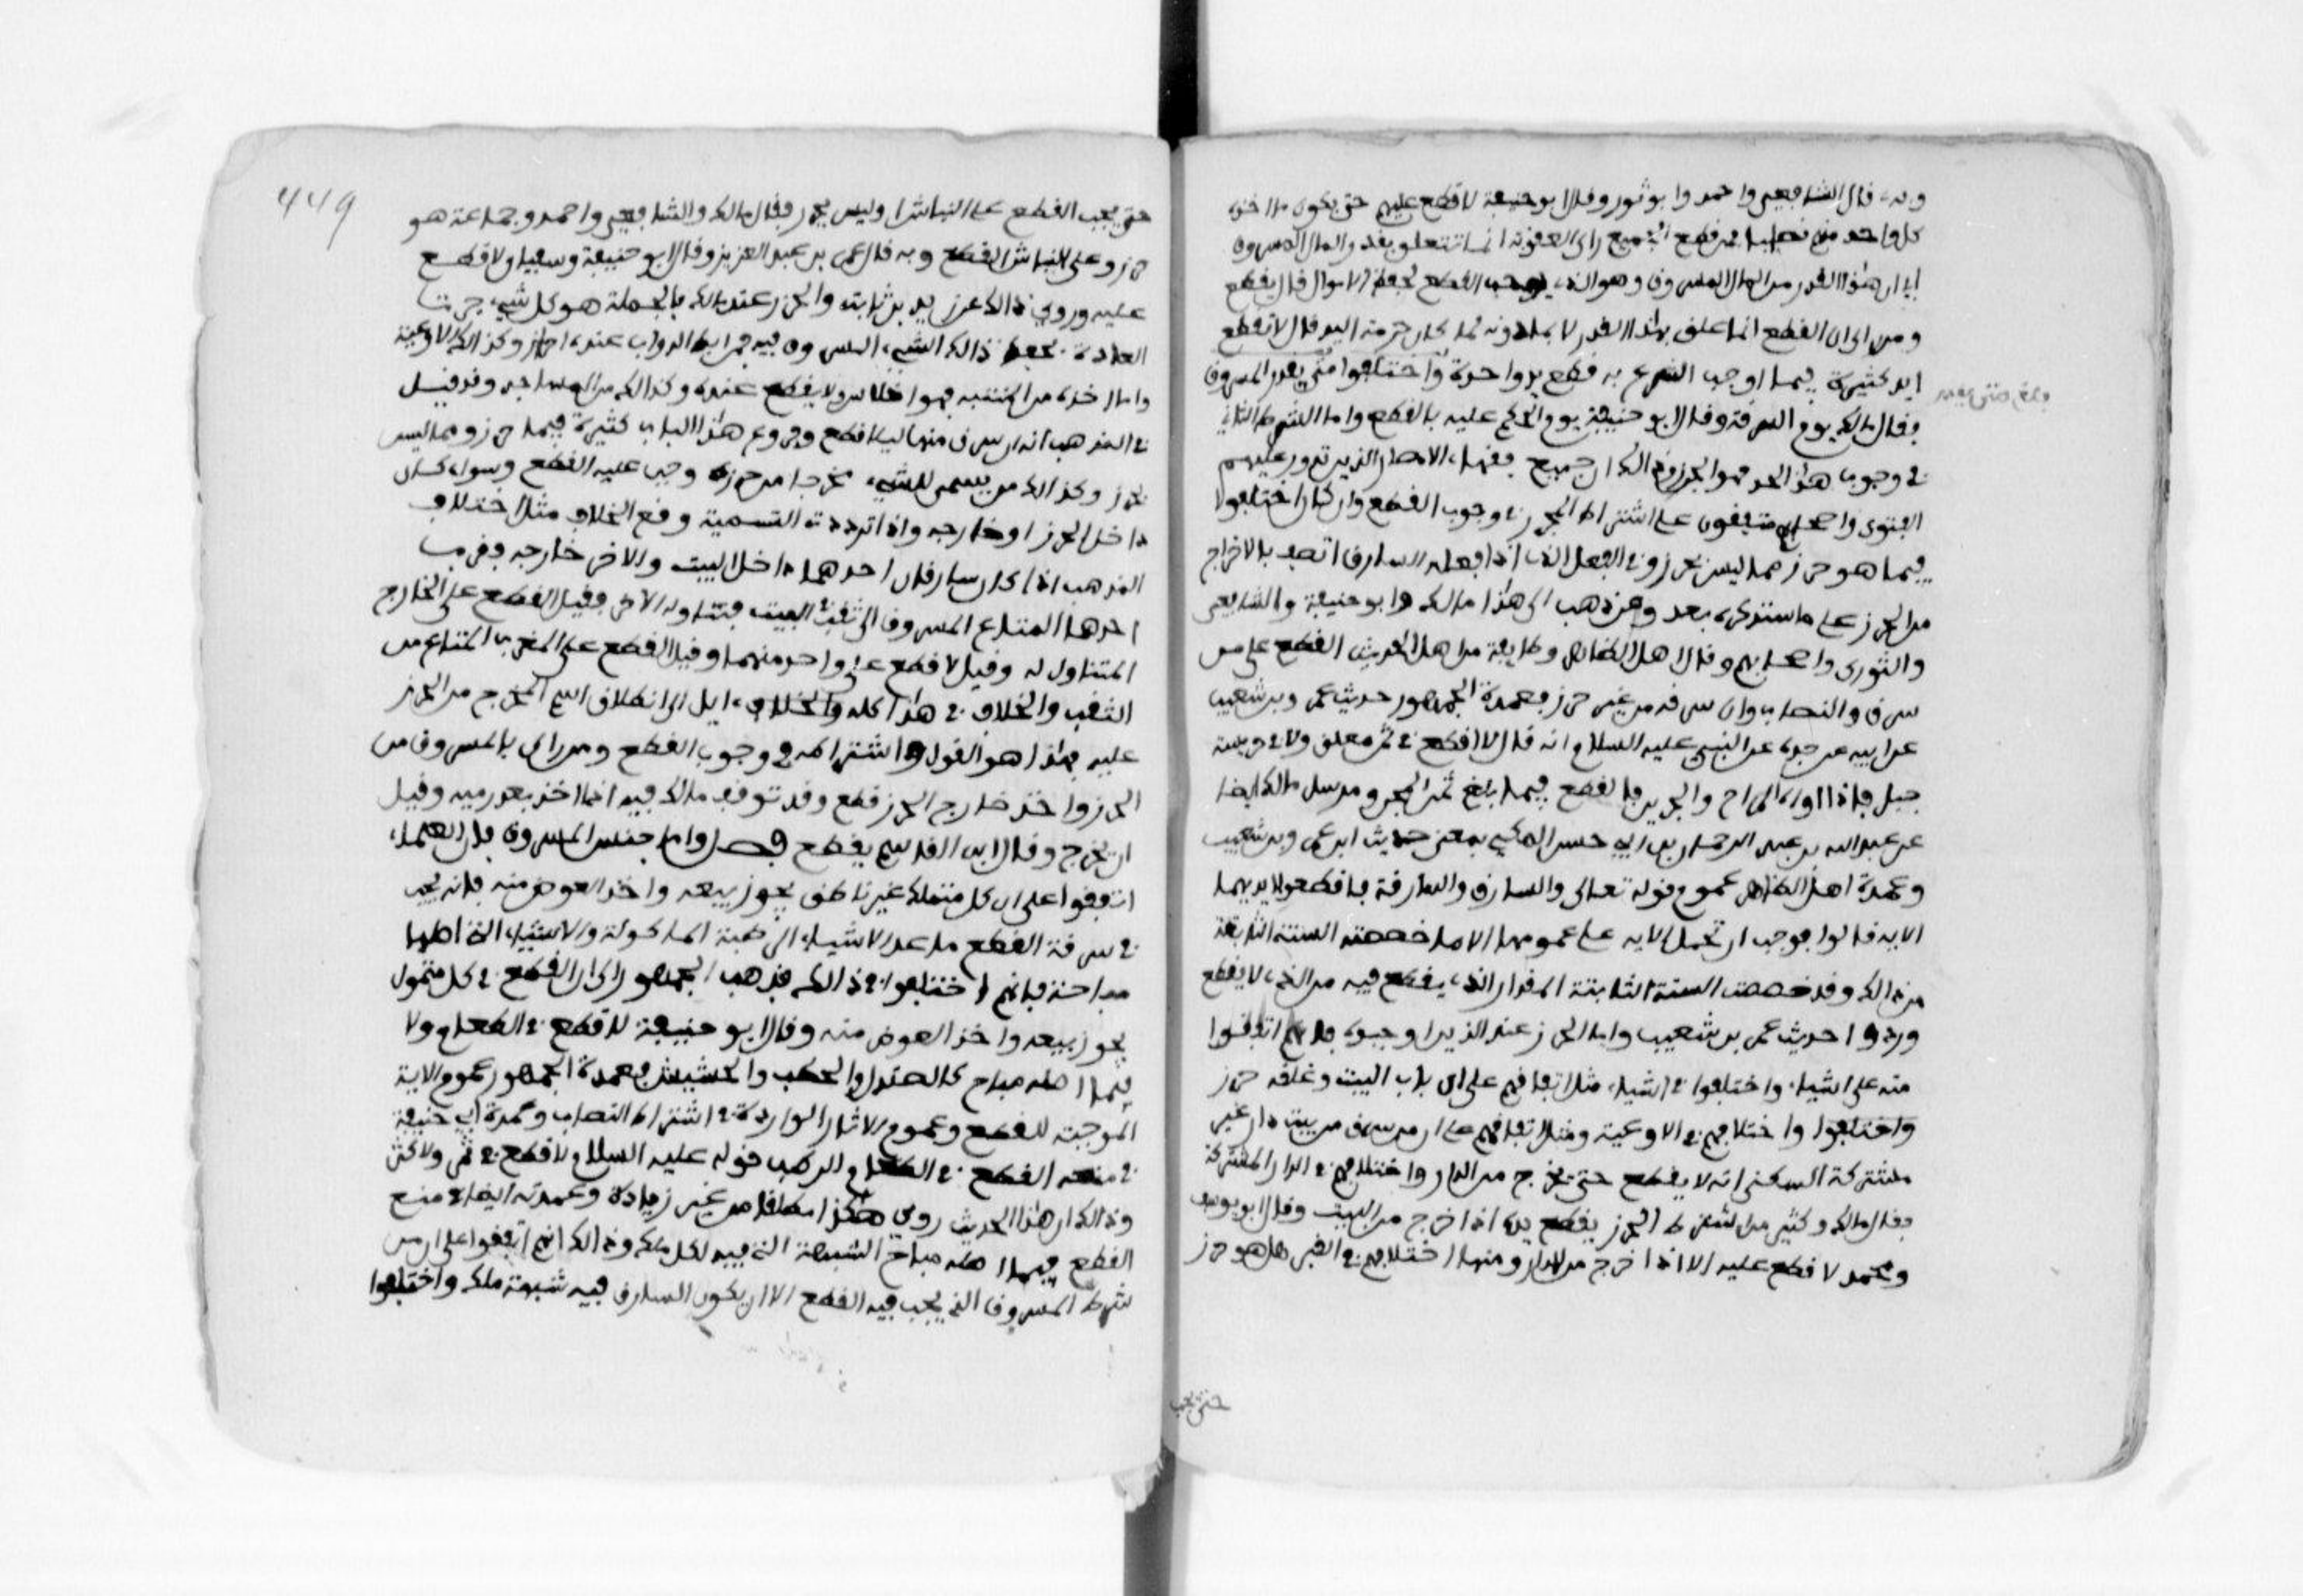 وبه قال الشافعي واحمد وابو ثور وقال ابو حنيفة لا قطع عليهم حتى يكون ما اخذه
كل واحد منهم نصابا فمن قطع الجميع راى العقوبة انما تتعلق بقدر المال المسروق
اي ان هذا القدر من المال المسروق هو الذي يوجب القطع لحفظ الاموال قال يقطع
ومن راى ان القطع انما علق بهذا القدر لا بما دونه لما كان حرمة اليد قال لا تقطع
ايد كثيرة فيما اوجب الشرع به قطع يد واحدة واختلفوا متى يقدر المسروق
فقال مالك يوم السرقة وقال ابو حنيفة يوم الحكم عليه بالقطع واما الشرط الثاني
في وجوب هذا الحد فهو الحرز وذالك ان جميع فقهاء الامصار الذين تدور عليهم
الفتوى واصحابهم متفقون على اشتراط الحرز في وجوب القطع وان كان اختلفوا
فيما هو حرز مما ليس بحرز وفي الفعل الذي اذا فعله السارق اتصف بالاخراج
من الحرز على ما سنذكره بعد وممن ذهب الى هذا مالك وابو حنيفة والشافعي
والثوري واصحابهم وقال اهل الظاهر وطايفة من اهل الحديث القطع على من
سرق النصاب وان سرقه من غير حرز فعمدة الجمهور حديث عمرو بن شعيب
عن ابيه عن جده عن النبي عليه السلام انه قال لا قطع في ثمر معلق ولا في حريسة
جبل فاذا اواه المراح والجرين فالقطع فيما بلغ ثمن المجن ومرسل مالك ايضا
عن عبد الله بن عبد الرحمان بن ابي حسن المكي بمعنى حديث ابن عمرو بن شعيب
وعمدة اهل الظاهر عموم قوله تعالى والسارق والسارقة فاقطعوا ايديهما
الاية قالوا فوجب ان تحمل الاية على عمومها الا ما خصصته السنة الثابتة
من ذالك وقد خصصت السنة الثابتة المقدار الذي يقطع فيه من الذي لا يقطع
وردوا حديث عمرو بن شعيب واما الحرز عند الذين اوجبوه فانهم اتفقوا
منه على اشياء واختلفوا في اشياء مثل اتفاقهم على ان باب البيت وغلقه حرز
واختلفوا واختلافهم في الاوعية ومثل اتفاقهم على ان من سرق من بيت دار غير
مشتركة السكنى انه لا يقطع حتى يخرج من الدار واختلافهم في الدار المشتركة
فقال مالك وكثير ممن اشترط الحرز يقطع يده اذا اخرج من البيت وقال ابو يوسف
ومحمد لا قطع عليه الا اذا اخرج من الدار ومنها اختلافهم في القبر هل هو حرز
حتى يجب
449
حتى يجب القطع على النباش او ليس بحرز فقال مالك والشافعي واحمد وجماعة هو
حرز وعلى النباش القطع وبه قال عمر بن عبد العزيز وقال ابو حنيفة وسفيان لا قطع
عليه وروي ذالك عن زيد بن ثابت والحرز عند مالك بالجملة هو كل شيء جرت
العادة بحفظ ذالك الشيء المسروق فيه فمرابط الدواب عنده احراز وكذالك الاوعية
في المذهب انه ان سرق منها ليلا قطع وفروع هذا الباب كثيرة فيما حرز ومما ليس
بحرز وكذالك من يسمى للشيء مخرجا من حرزه وجب عليه القطع وسواء كان
داخل الحرز او خارجه واذا ترددت التسمية وقع الخلاف مثل اختلاف
المذهب اذا كان سارقان احدهما داخل البيت والاخر خارجه فقرب
احدهما المتاع المسروق الى ثقب في البيت فتناوله الاخر فقيل القطع على الخارج
المتناول له وقيل لا قطع على واحد منهما وقيل القطع على المقرب المتاع من
الثقب والخلاف في هذا كله والخلاف ايل الى انطلاق اسم المخرج من الحرز
عليه فهذا هو القول في اشتراطه في وجوب القطع ومن رمى بالمسروق من
الحرز واخذ خارج الحرز قطع وقد توقف مالك فيه اذا اخذ بعد رميه وقبل
ان يخرج وقال ابن القاسم يقطع فصل واما جنس المسروق فان العلماء
اتفقوا على ان كل متملك غير ناطق يجوز بيعه واخذ العوض منه فانه يجب
في سرقة القطع ما عدا الاشياء الرطبة الماكولة والاشياء التي اصلها
مباحة فانهم اختلفوا في ذالك فذهب الجمهور الى ان القطع في كل متمول
يجوز بيعه واخذ العوض منه وقال ابو حنيفة لا قطع في الطعام ولا
فيما اصله مباح كالصيد والحطب والحشيش فعمدة الجمهور عموم الاية
الموجبة للقطع وعموم الاثار الواردة في اشتراط النصاب وعمدة ابي حنيفة
في منعه القطع في الطعام الرطب قوله عليه السلام لا قطع في ثمر ولا كثر
وذالك ان هذا الحديث روي هكذا مطلقا من غير زيادة وعمدته ايضا في منع
القطع فيما اصله مباح الشبهة التي فيه لكل ملك وذالك انهم اتفقوا على ان من
شرط المسروق الذي يجب فيه القطع الا ان يكون للسارق فيه شبهة ملك واختلفوا